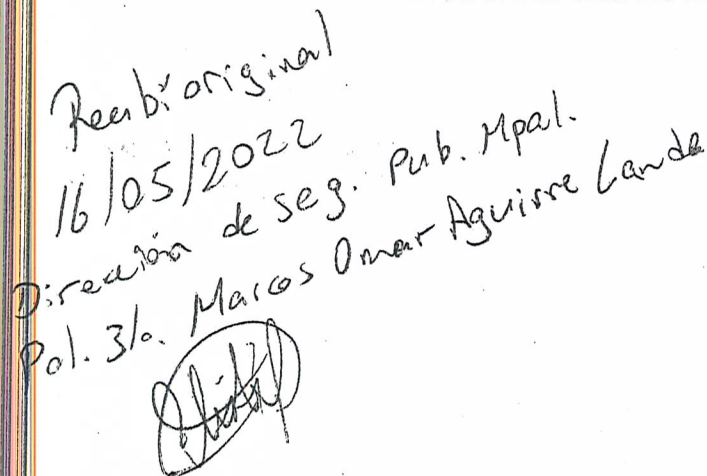 Recibi original
16/05/2022
Dirección de seg. Pub. Mpal.
Pol. 3/o. Marcos Omar Aguirre Landa